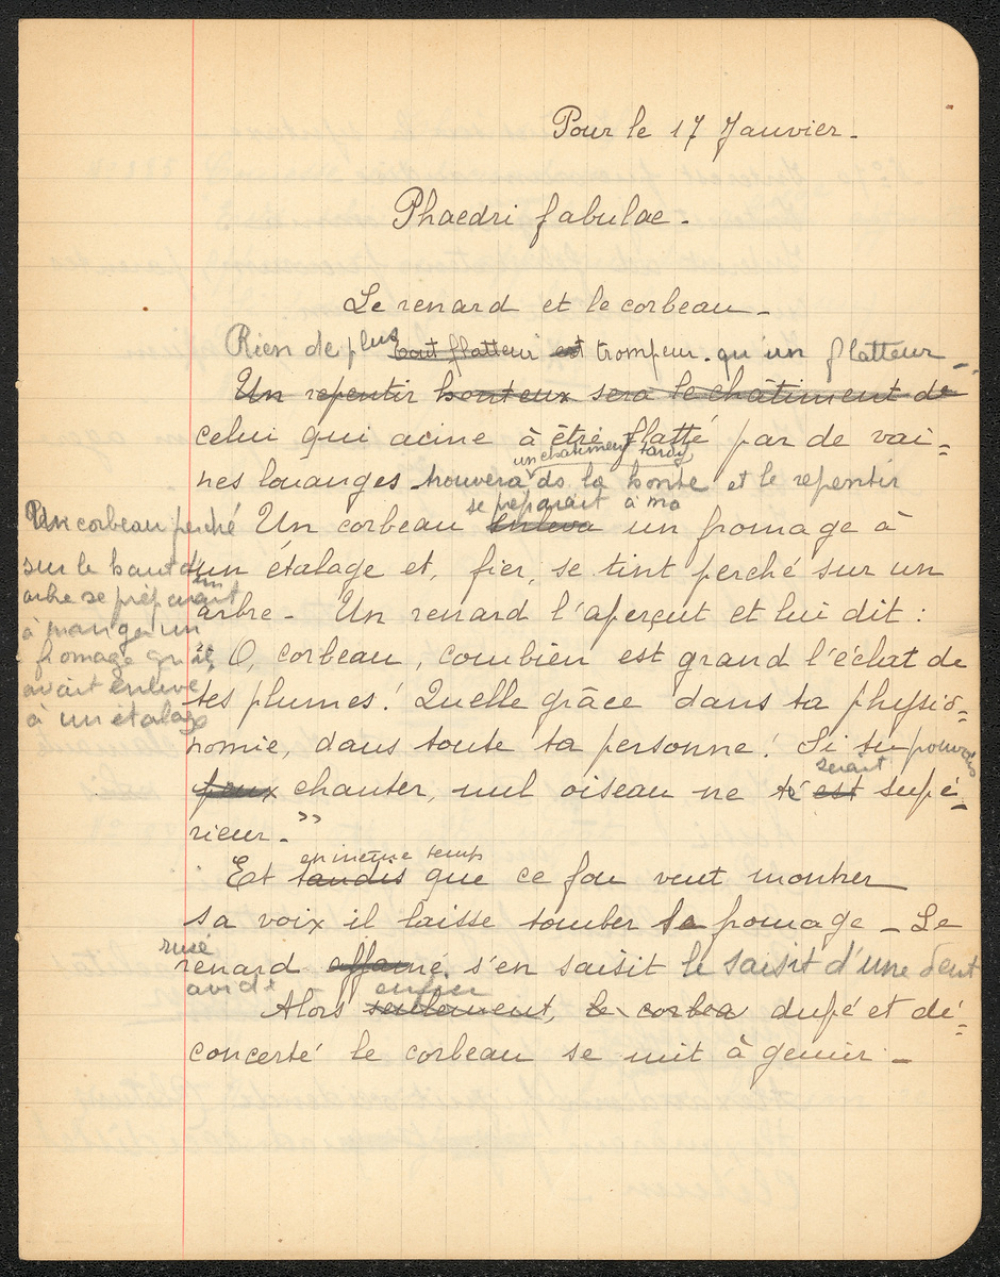 Pour le 17 Janvier.
Phaedri fabulae.
Le renard et le corbeau.
Rien de plus tout flatteur est trompeur. qu'un flatteur
Un repentir honteux sera le châtiment de
celui qui aime à être flatté par de vai=
un châtiment tardif
nes louanges trouvera ds la honte et le repentir
se préparait à ma
Un corbeau enleva un fromage à
un étalage et, fier, se tint perché sur un
arbre. Un renard l'aperçut et lui dit :
"O, corbeau, combien est grand l'éclat de
tes plumes! Quelle grâce dans ta physio=
nomie, dans toute ta personne! Si tu pouvais
serait
peux chanter, nul oiseau ne té est supé=
rieur."
en même temps
Et tandis que ce fou veut montrer
sa voix il laisse tomber le fromage - Le
rusé
renard affamé, s'en saisit le saisit d'une dent
avide enfin
Alors seulement, le corbea dupé et dé=
concerté le corbeau se mit à gémir. -
Un corbeau perché
sur le haut d'un
arbre se préparait
à manger un
fromage qu'il
avait enlevé
à un étalage